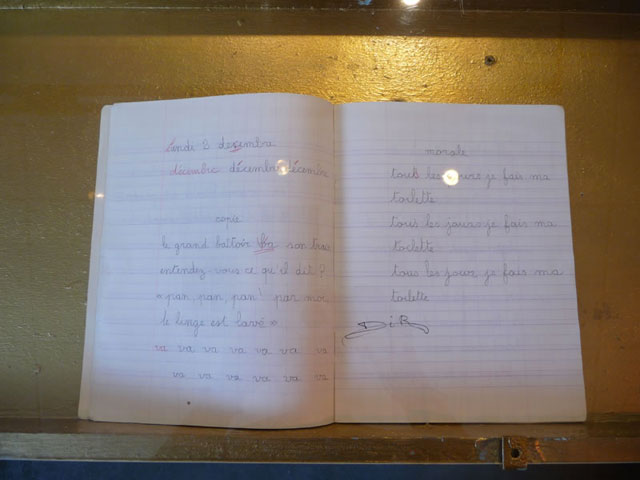 lundi 8 decembre
décembre décembre décembre
copie
le grand battoir bon
entendez-vous ce qu'il dit ?
« pan, pan, pan ! par moi
le linge est lavé »
va va va va va va va
va va va va va va
morale
tous les jours je fais ma
toilette
tous les jours je fais ma
toilette
tous les jour je fais ma
toilette
DiR